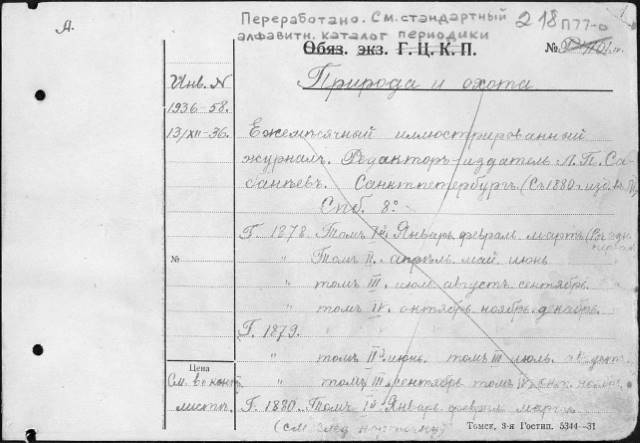 А.
Переработано. См. стандартный
алфавитн. каталог периодики
218 П77-о
Обяз. экз. Г. Ц. К. П.
№
Природа и охота
Инв. N
1936-58.
13/XII-36.
Ежемѣсячный иллюстрированный
журналъ. Редакторъ-издатель Л. П. Са-
банѣевъ. Санктпетербургъ (Съ 1880
Спб. 8°
Г. 1878. Томъ Iй Январь февраль мартъ
№
" Томъ II. апрѣль май июнь
" томъ III июль августъ сентябрь
" томъ IV. октябрь ноябрь декабрь.
Г. 1879.
" томъ IIй июнь. томъ III июль.
Цена
См. в конт.
листк.
" томъ III. сентябрь томъ
Г. 1880. Томъ Iй Январь февраль мартъ
(см. след карточку)
Томск, 3-я Гостип. 5344—31